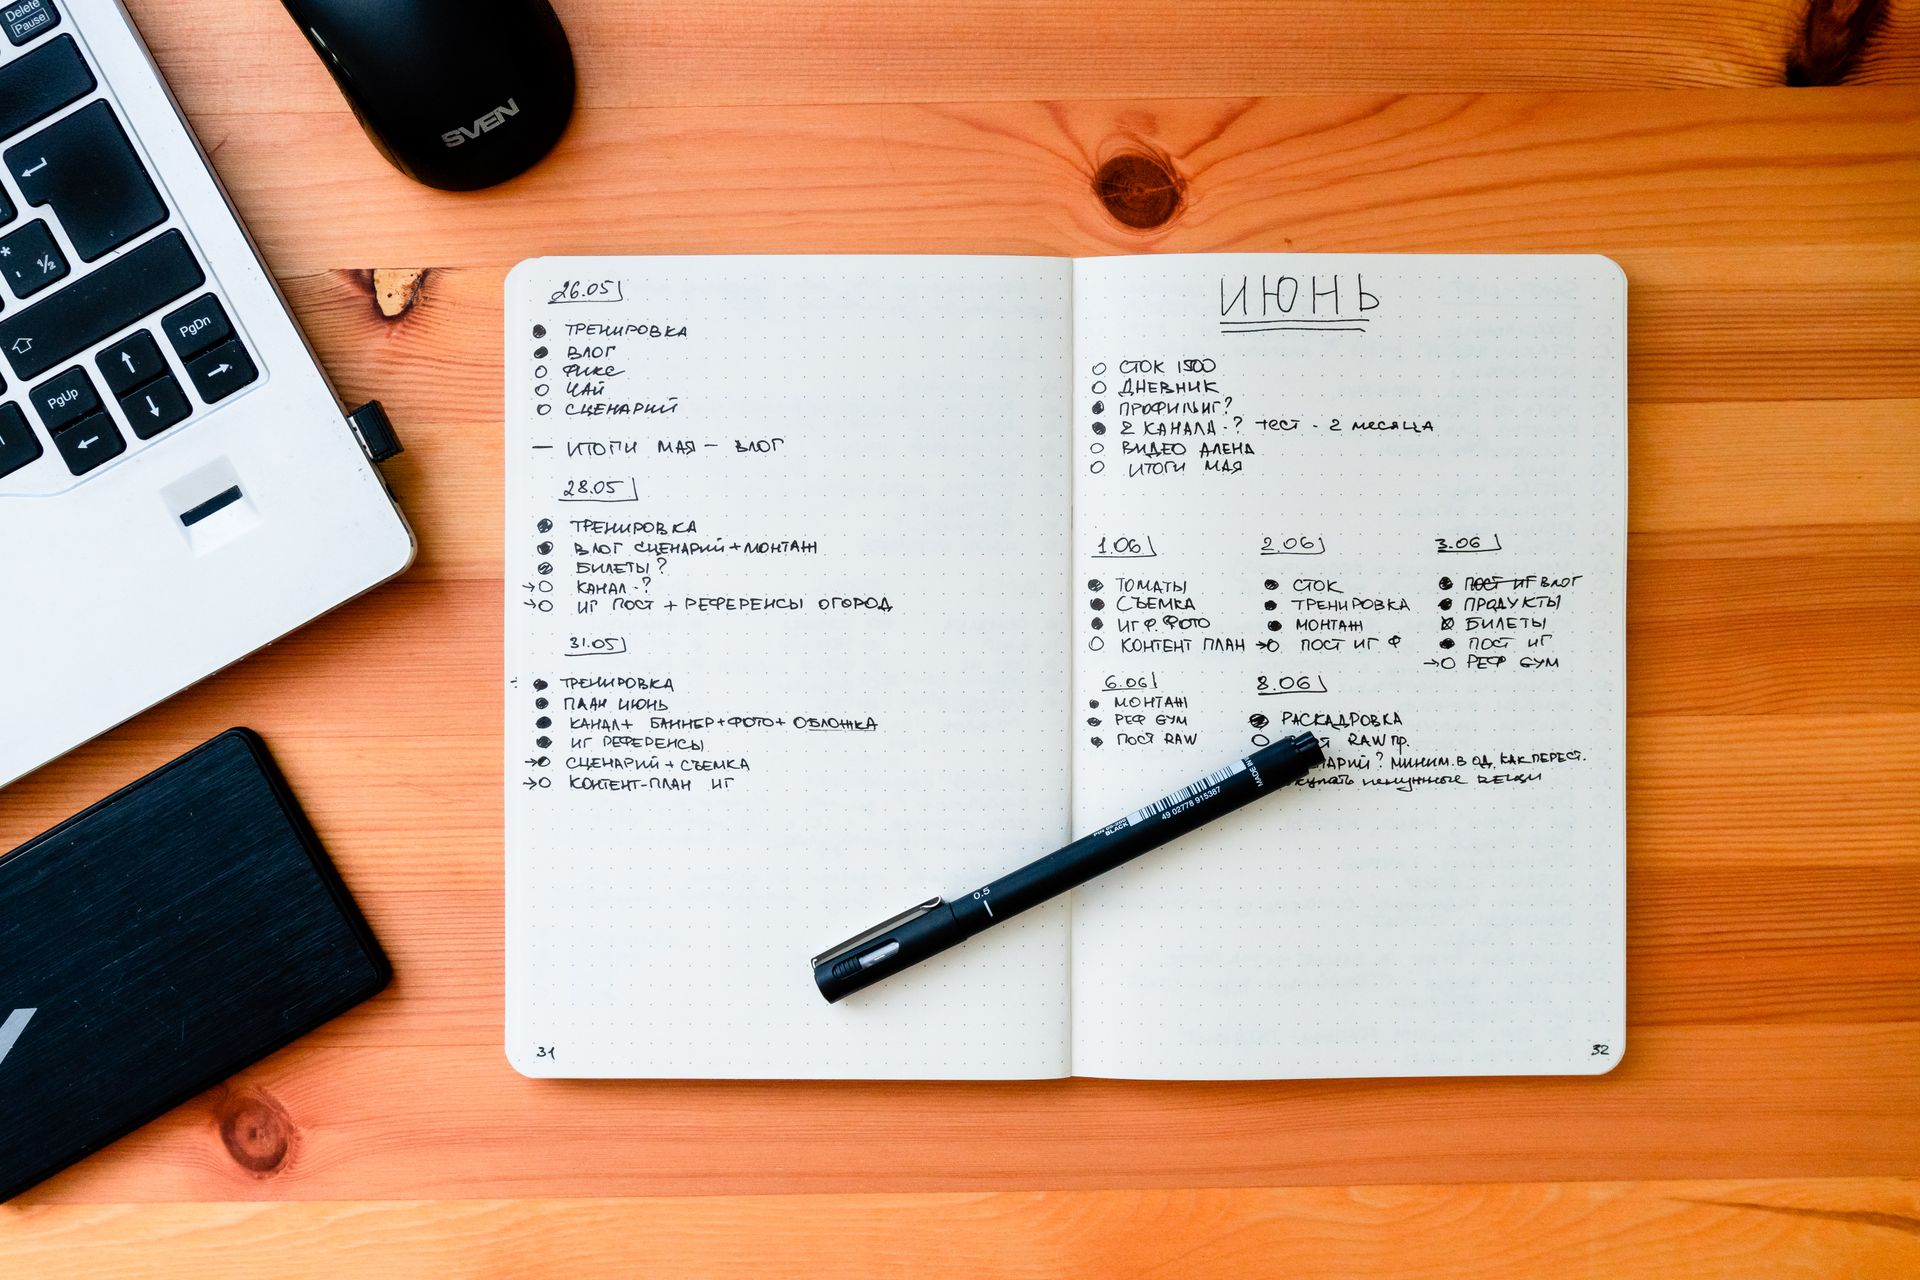 Delete
Pause
½
PgDn
PgUp
SVEN
26.05
ТРЕНИРОВКА
ВЛОГ
ФИКС
ЧАЙ
СЦЕНАРИЙ
— ИТОГИ МАЯ — ВЛОГ
28.05
ТРЕНИРОВКА
ВЛОГ СЦЕНАРИЙ+МОНТАЖ
БИЛЕТЫ?
→ КАНАЛ-?
→ ИГ ПОСТ + РЕФЕРЕНСЫ ОГОРОД
31.05
ТРЕНИРОВКА
ПЛАН ИЮНЬ
КАНАЛ+ БАННЕР+ФОТО+ОБЛОЖКА
ИГ РЕФЕРЕНСЫ
→ СЦЕНАРИЙ+СЪЕМКА
→ КОНТЕНТ-ПЛАН ИГ
31
ИЮНЬ
СТОК 1500
ДНЕВНИК
ПРОФИЛЬ ИГ?
2 КАНАЛА-? тест - 2 месяца
ВИДЕО АЛЕНА
ИТОГИ МАЯ
1.06
ТОМАТЫ
СЪЕМКА
ИГ Ф. ФОТО
КОНТЕНТ ПЛАН
2.06
СТОК
ТРЕНИРОВКА
МОНТАЖ
→ ПОСТ ИГ Ф
3.06
ПОСТ ИГ ВЛОГ
ПРОДУКТЫ
БИЛЕТЫ
ПОСТ ИГ
→ РЕФ GYM
6.06
МОНТАЖ
РЕФ GYM
ПОСТ RAW
8.06
РАСКАДРОВКА
RAW пр.
? МИНИМ. В ОД. КАК ПЕРЕСТ.
ненужные вещи
32
0.5
BLACK
49 02778 915387
MADE IN